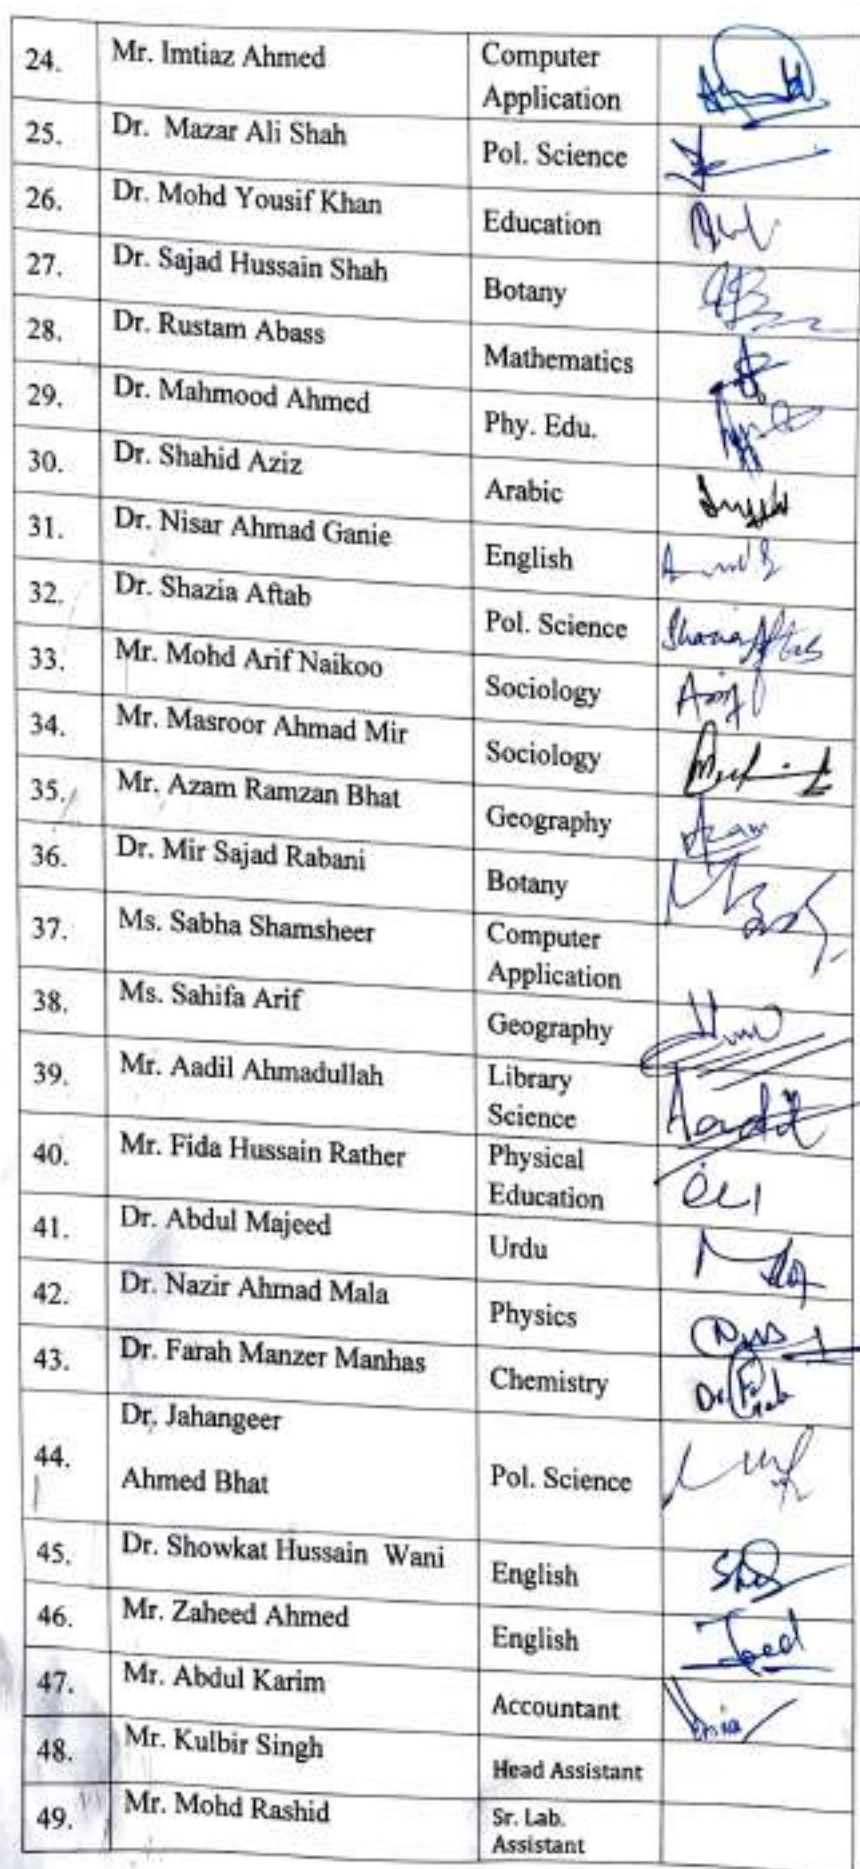 24. Mr. Imtiaz Ahmed Computer
Application
25. Dr. Mazar Ali Shah Pol. Science
26. Dr. Mohd Yousif Khan Education
27. Dr. Sajad Hussain Shah Botany
28. Dr. Rustam Abass Mathematics
29. Dr. Mahmood Ahmed Phy. Edu.
30. Dr. Shahid Aziz Arabic
31. Dr. Nisar Ahmad Ganie English
32. Dr. Shazia Aftab Pol. Science Shazia Aftab
33. Mr. Mohd Arif Naikoo Sociology
34. Mr. Masroor Ahmad Mir Sociology
35. Mr. Azam Ramzan Bhat Geography Azam
36. Dr. Mir Sajad Rabani Botany
37. Ms. Sabha Shamsheer Computer
Application
38. Ms. Sahifa Arif Geography
39. Mr. Aadil Ahmadullah Library
Science
40. Mr. Fida Hussain Rather Physical
Education
41. Dr. Abdul Majeed Urdu
42. Dr. Nazir Ahmad Mala Physics
43. Dr. Farah Manzer Manhas Chemistry
44. Dr. Jahangeer
Ahmed Bhat Pol. Science
45. Dr. Showkat Hussain Wani English
46. Mr. Zaheed Ahmed English
47. Mr. Abdul Karim Accountant
48. Mr. Kulbir Singh Head Assistant
49. Mr. Mohd Rashid Sr. Lab.
Assistant